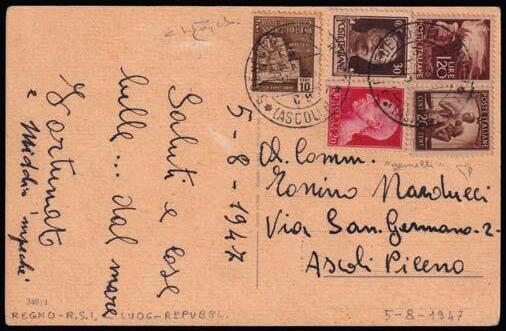 5-8-1947
Saluti e cose
belle... dal mare
Fortunat
e
Al Comm.
Tonino Narducci
Via San Germano-2-
Ascoli Piceno
"gemelli"
340/1
REGNO-R.S.I. LUOG-REPUBBL.
5-8-1947
POSTE ITALIANE
LIRE
1,20
POSTE ITALIANE
30
10
20
POSTE ITALIANE
20
CENTESIMI
(ASCOLI